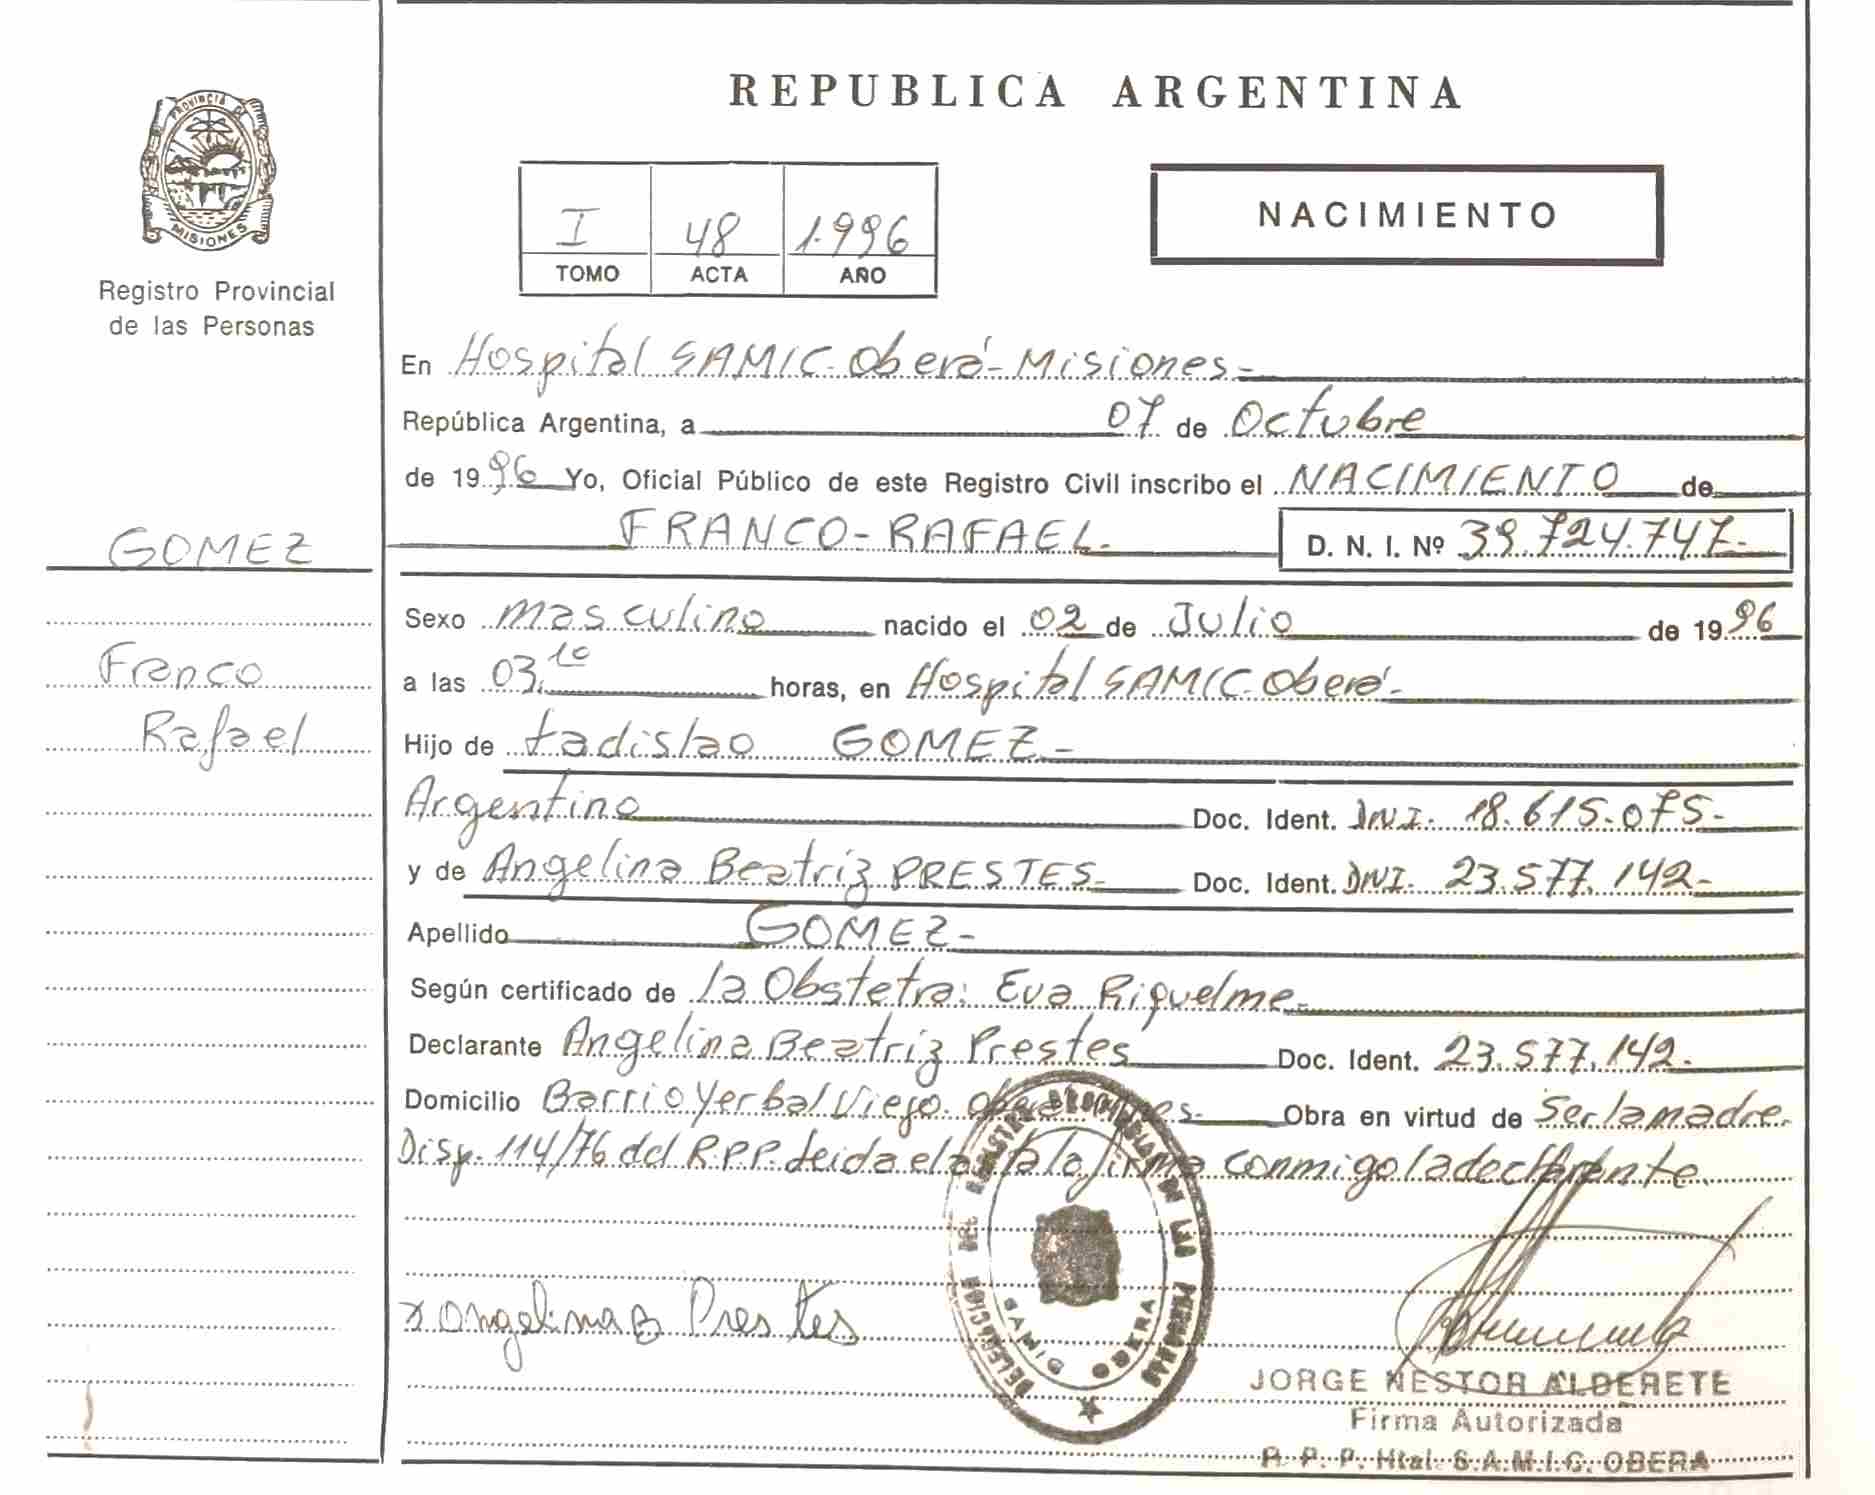 REPUBLICA ARGENTINA
PROVINCIA DE
MISIONES
Registro Provincial
de las Personas
I 48 1.996
TOMO ACTA AÑO
NACIMIENTO
En Hospital SAMIC-Oberá-Misiones-
República Argentina, a 07 de Octubre
de 1996 Yo, Oficial Público de este Registro Civil inscribo el NACIMIENTO de
FRANCO-RAFAEL- D. N. I. Nº 39.724.747-
GOMEZ
Franco
Rafael
Sexo masculino nacido el 02 de Julio de 1996
a las 03.10 horas, en Hospital SAMIC-Oberá-
Hijo de Ladislao GOMEZ-
Argentino Doc. Ident. DNI. 18.615.075-
y de Angelina Beatriz PRESTES- Doc. Ident. DNI. 23.577.142-
Apellido GOMEZ-
Según certificado de la Obstetra: Eva Riquelme-
Declarante Angelina Beatriz Prestes Doc. Ident. 23.577.142-
Domicilio Barrio Yerbal Viejo- Obra en virtud de Ser la madre-
Disp. 114/76 del R.P.P. Leida el acta la firma conmigo la declarante.
x Angelina B Prestes
DELEGACION DEL REGISTRO PROVINCIAL DE LAS PERSONAS
OBERA
JORGE NESTOR ALDERETE
Firma Autorizada
R. P. P. Htal. S.A.M.I.C. OBERA